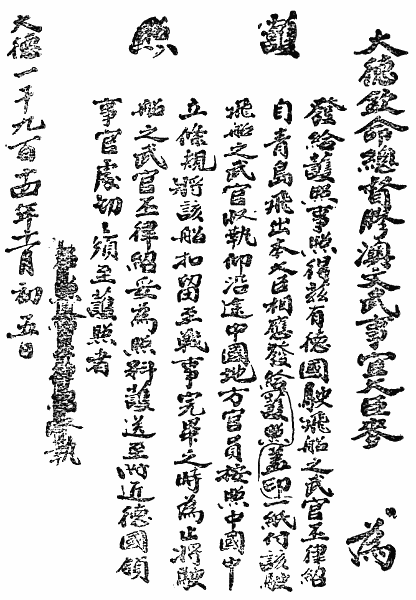 護照
大德欽命總督膠澳文武事宜大臣麥 為
發給護照事照得茲有德國駛飛船之武官丕律紹
自青島飛出本大臣相應發給護照蓋印一紙付該駛
飛船之武官收執仰沿途中國地方官員按照中國中
立條規將該船扣留至戰事完畢之時為止將駛
船之武官丕律紹妥為照料護送至附近德國領
事官處切切須至護照者
執
大德一千九百十四年十一月初五日